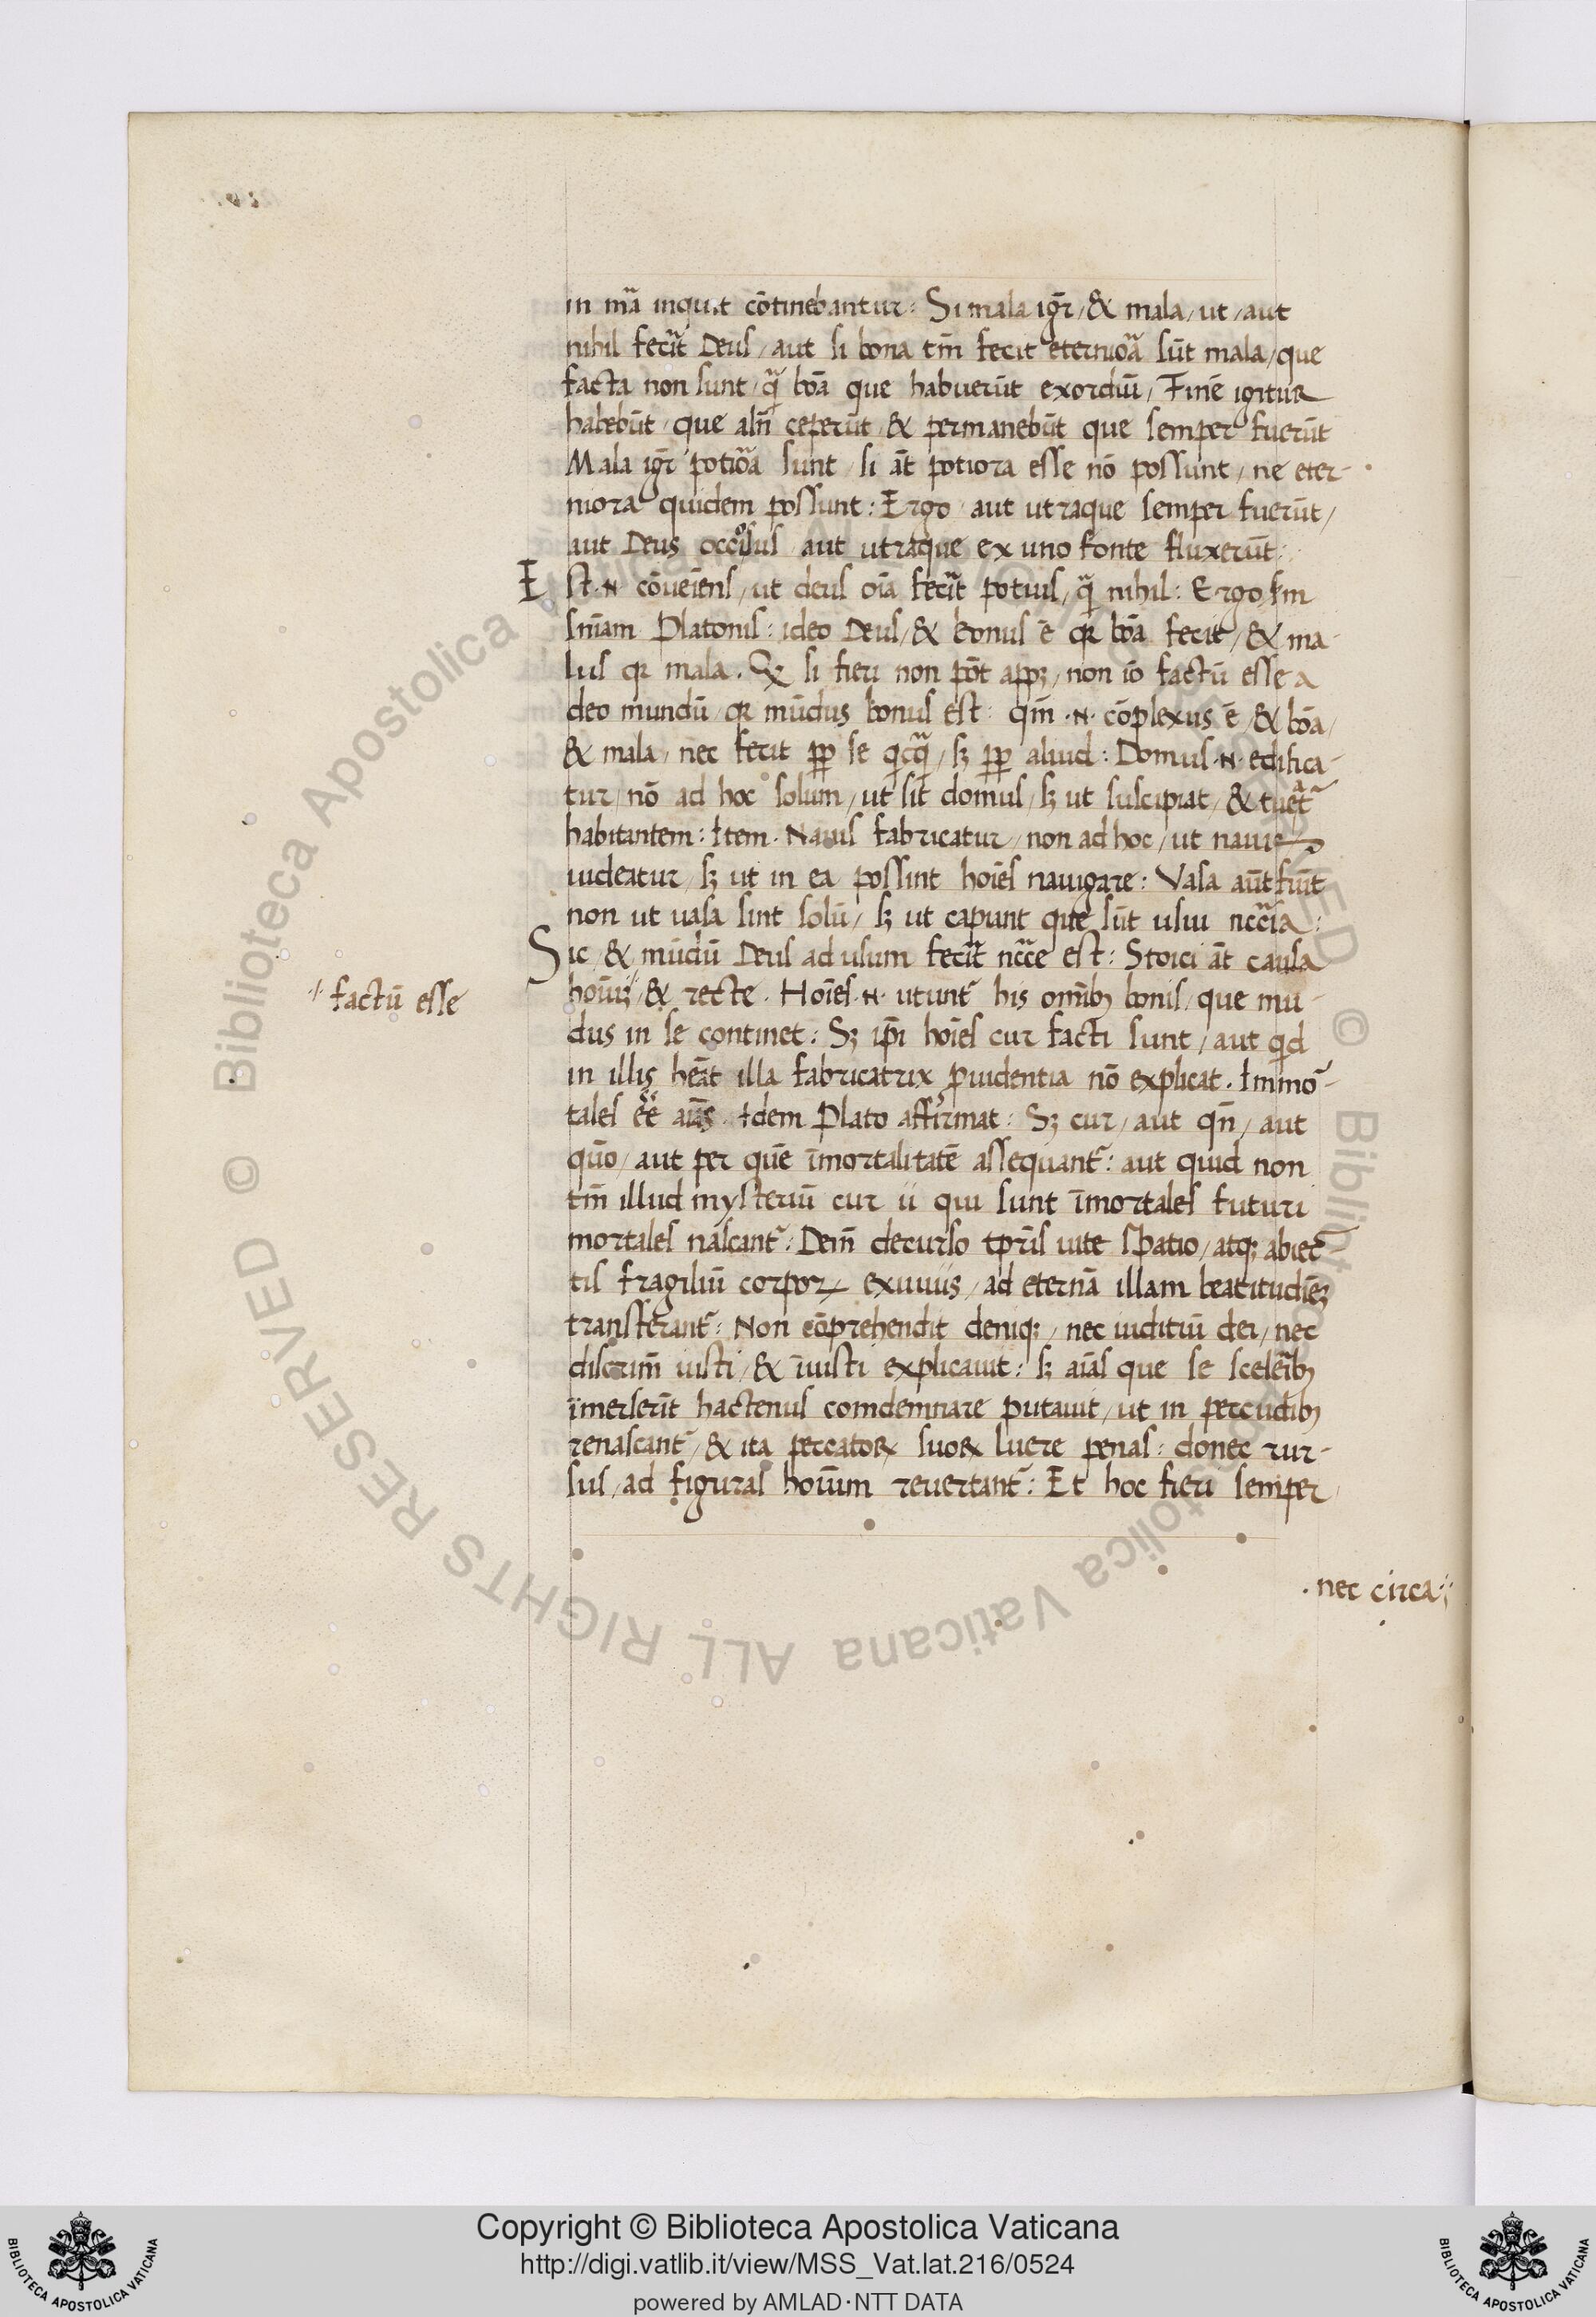 in mā inquit cōtinebantur: Si mala igr̄ / & mala / ut / aut
nihil fecit Deus / aut si bona tm̄ fecit eterniora sūt mala / que
facta non sunt / q̄ boā que habuerūt exordiū / Finē igitur
habebūt / que aln̄ ceperūt & permanebūt que semper fuerūt
Mala igr̄ potiora sunt / si āt potiora esse nō possunt / ne eter-
niora quidem possunt: Ergo aut utraque semper fuerūt /
aut Deus occiosus aut utraque ex uno fonte fluxerūt:
Est .N. cōueiens / ut deus oīa fecit potius / q̄ nihil: Ergo sm
sniam Platonis: ideo Deus / & bonus ē qr boā fecit / & ma-
lus qr mala. si fieri non pōt app; / non iō factū esse a
deo mundū / qr mūdus bonus est: qm̄ .N. cōplexus ē / & boā /
& mala / nec fecit pp se qcq / s; pp aliud: Domus .N. edifica-
tur / nō ad hoc solum / ut sit domus / s; ut suscipiat / & tueat̄
habitantem: Item. Nauis fabricatur / non ad hoc / ut nauis
uideatur / s; ut in ea possint hoīes nauigare: Vasa aūt fiūt
non ut uasa sint solū / s; ut capiant que sūt usui nccīa:
Sic / & mūdū Deus ad usum fecit ncc̄e est: Stoici āt causa
hoīu; / & recte. Hoīes .N. utunt̄ his omīb; bonis / que mu-
/ factū esse
dus in se continet: S; ip̄i hoīes cur facti sunt / aut qd
in illis heāt illa fabricatrix puidentia nō explicat. Immor-
tales eē aīas. Idem Plato affirmat: S; cur / aut qn̄ / aut
quō / aut per quē īmortalitatē assequant̄: aut quid non
tm̄ illud mysteriū cur ii qui sunt īmortales futuri
mortales nascant̄: Dem̄ decurso tpr̄is uite spatio / atq; abiec-
tis fragiliū corpor exuuiis / ad eternā illam beatitudiē;
transferant̄: Non cōprehendit deniq; / nec iuditiū dei / nec
discrim̄ iusti / & īiusti explicauit: s; aīas que se scelerib;
īmerserīt hactenus comdemnare putauit / ut in pecudib;
renascant̄ / & ita peccator suor luere penas: donec rur-
sus / ad figuras hoīum reuertant̄: Et hoc fieri semper
. nec circa:
Copyright © Biblioteca Apostolica Vaticana
http://digi.vatlib.it/view/MSS_Vat.lat.216/0524
powered by AMLAD·NTT DATA
BIBLIOTECA APOSTOLICA VATICANA
BIBLIOTECA APOSTOLICA VATICANA
© Biblioteca Apostolica Vaticana ALL RIGHTS RESERVED
© Biblioteca Apostolica Vaticana ALL RIGHTS RESERVED